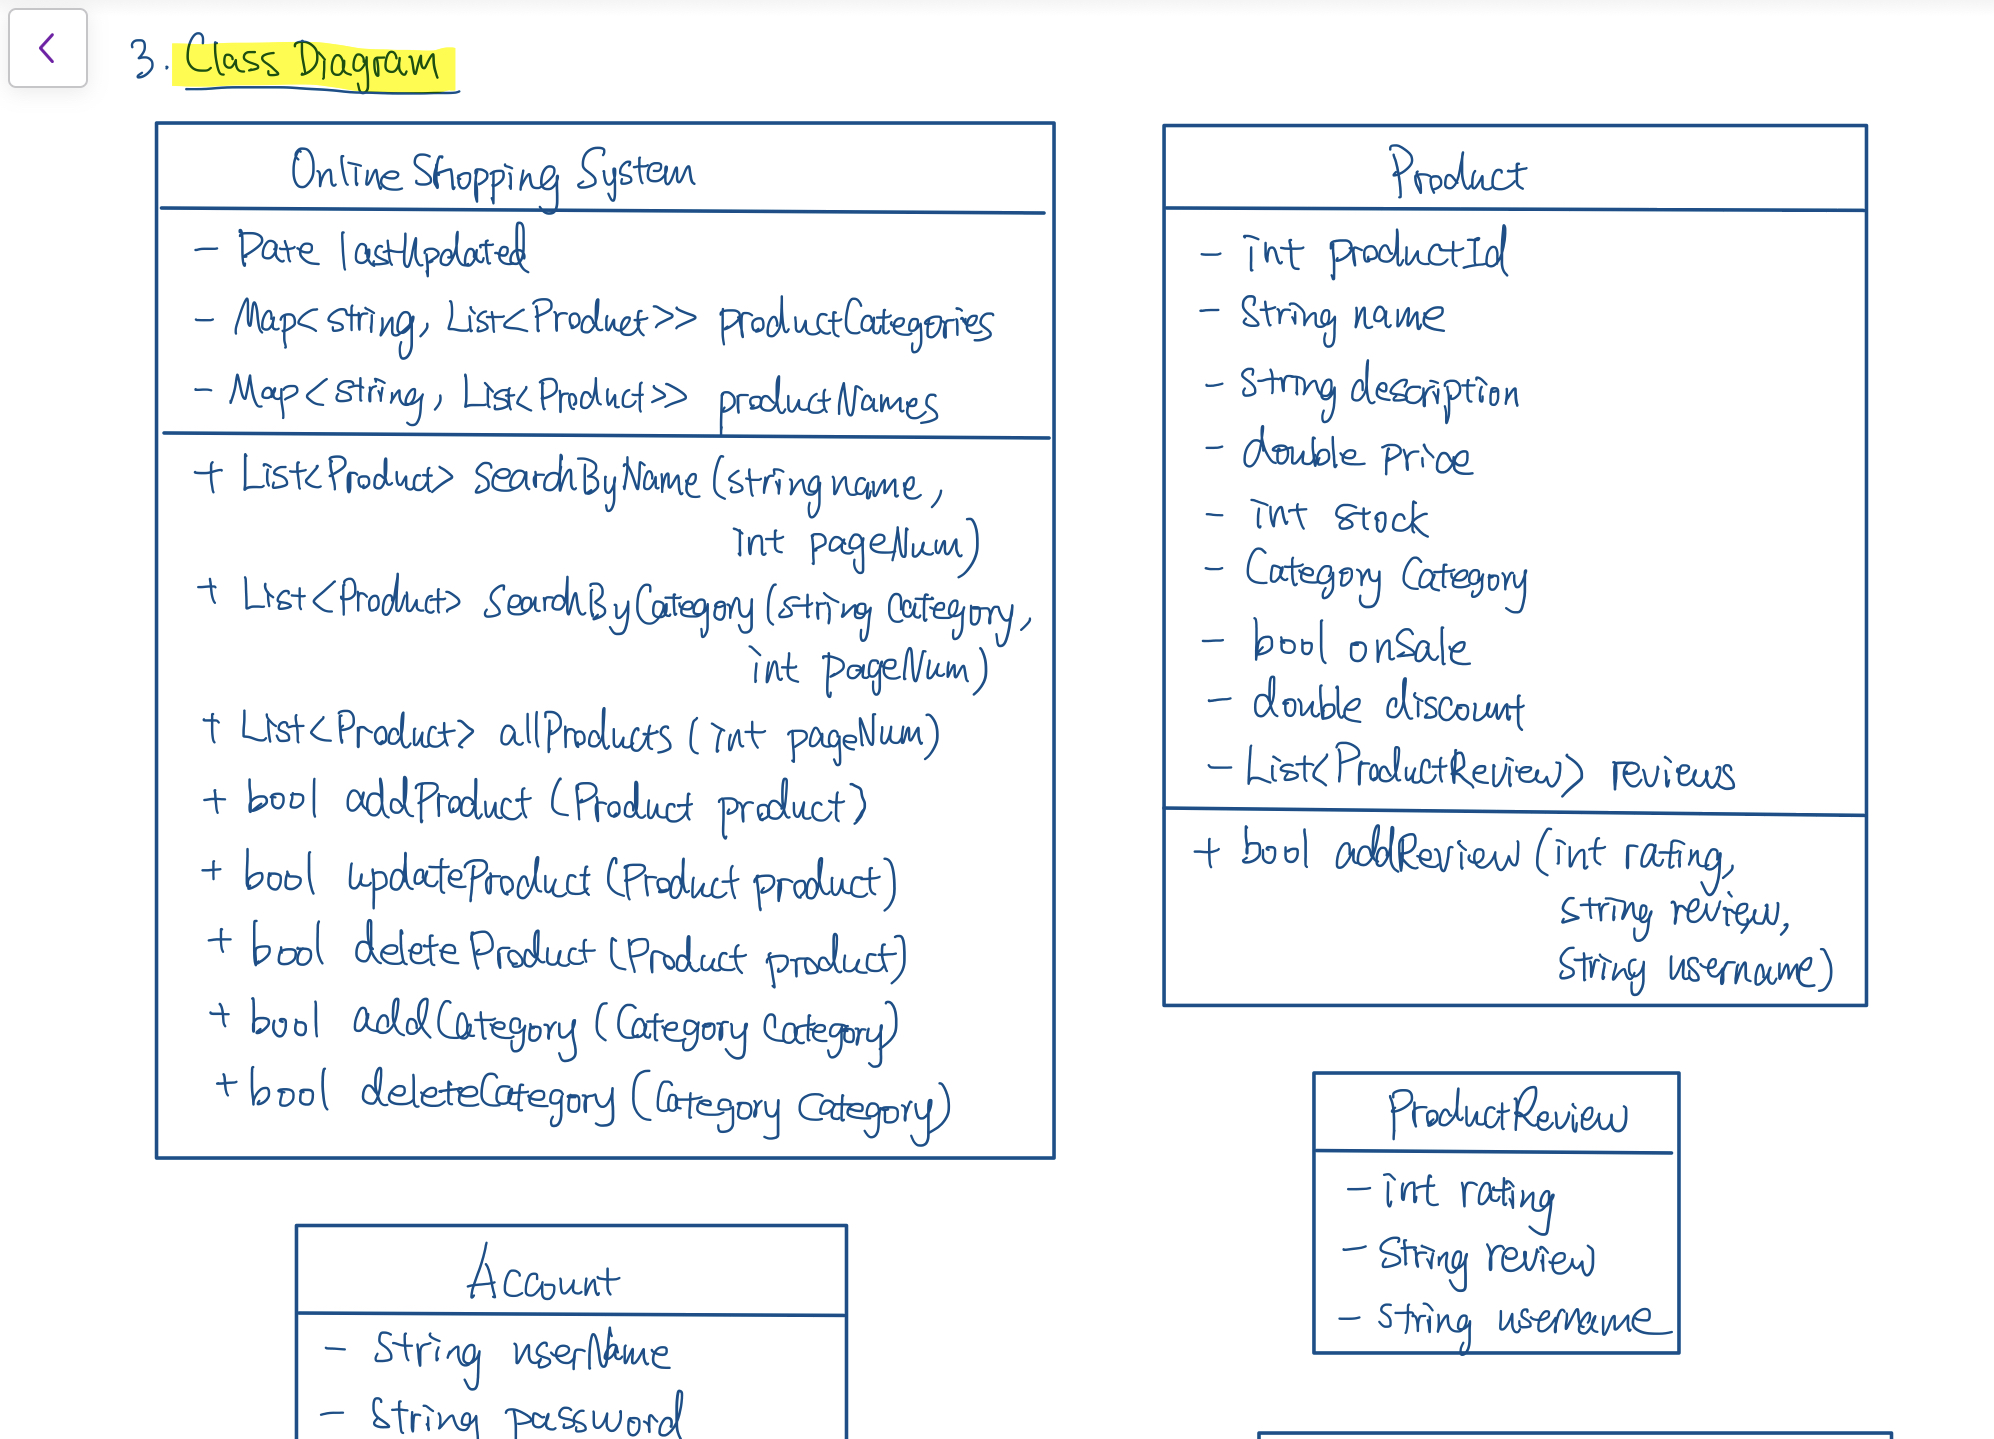 3. Class Diagram
Online Shopping System
- Date lastUpdated
- Map<string, List<Product>> productCategories
- Map<string, List<Product>> productNames
+ List<Product> searchByName (string name,
int pageNum)
+ List<Product> searchByCategory (string category,
int pageNum)
+ List<Product> allProducts (int pageNum)
+ bool addProduct (Product product)
+ bool updateProduct (Product product)
+ bool deleteProduct (Product product)
+ bool addCategory (Category category)
+ bool deleteCategory (Category category)
Product
- int productId
- string name
- string description
- double price
- int stock
- Category category
- bool onSale
- double discount
- List<ProductReview> reviews
+ bool addReview (int rating,
string review,
string username)
ProductReview
- int rating
- string review
- string username
Account
- string userName
- string password